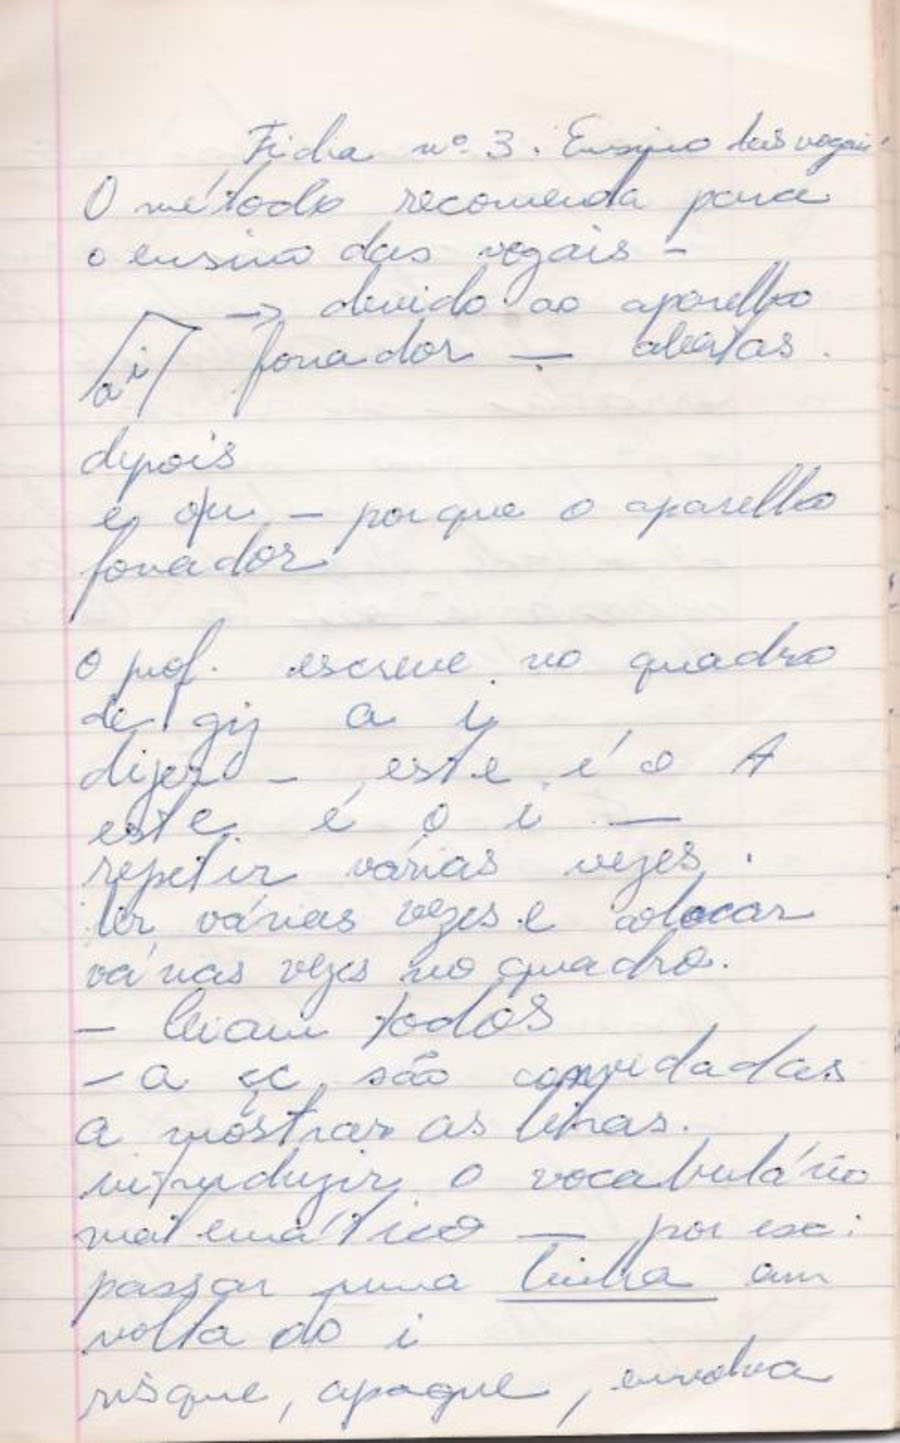 Ficha nº 3. Ensino das vogais
O método recomenda para
o ensino das vogais -
→ devido ao aparelho
a i fonador — abertas.
depois
e, o/u - porque o aparelho
fonador
O prof. escreve no quadro
de giz a i
dizer - este é o A
este é o i —
repetir várias vezes.
ler várias vezes e colocar
várias vezes no quadro.
- leiam todos
- a çc, são convidadas
a mostrar as letras.
introduzir o vocabulário
matemático — por ex:
passar uma linha em
volta do i
risque, apague, envolva